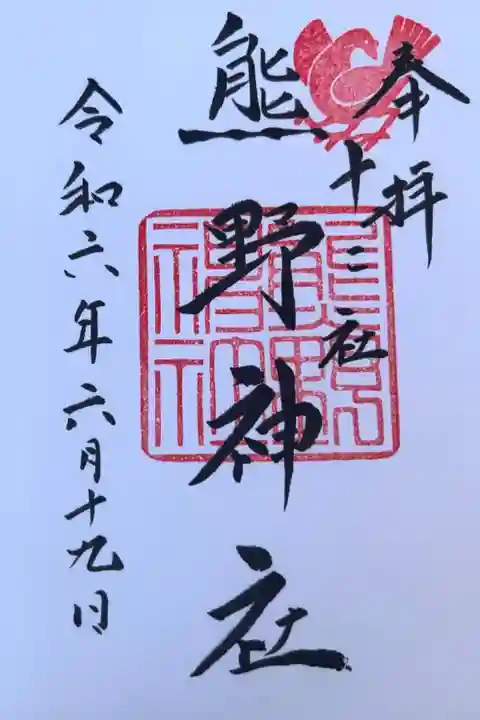 奉拝
十二社
熊野神社
令和六年六月十九日